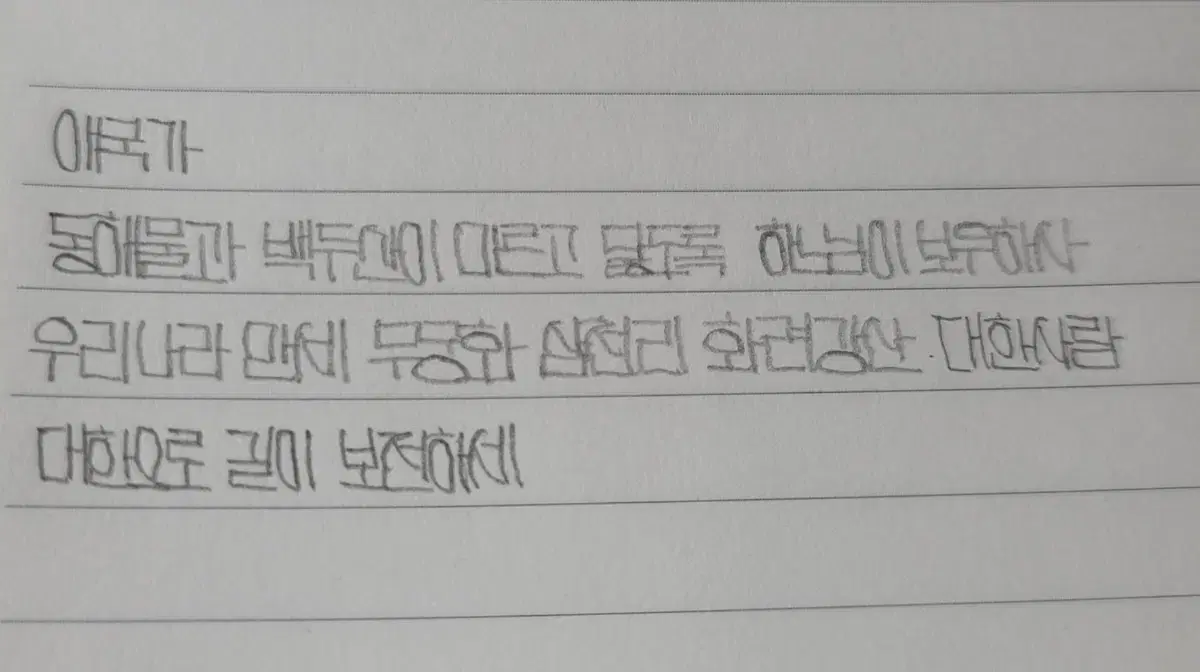 애국가
동해물과 백두산이 마르고 닳도록 하느님이 보우하사
우리나라 만세 무궁화 삼천리 화려강산 대한사람
대한으로 길이 보전하세